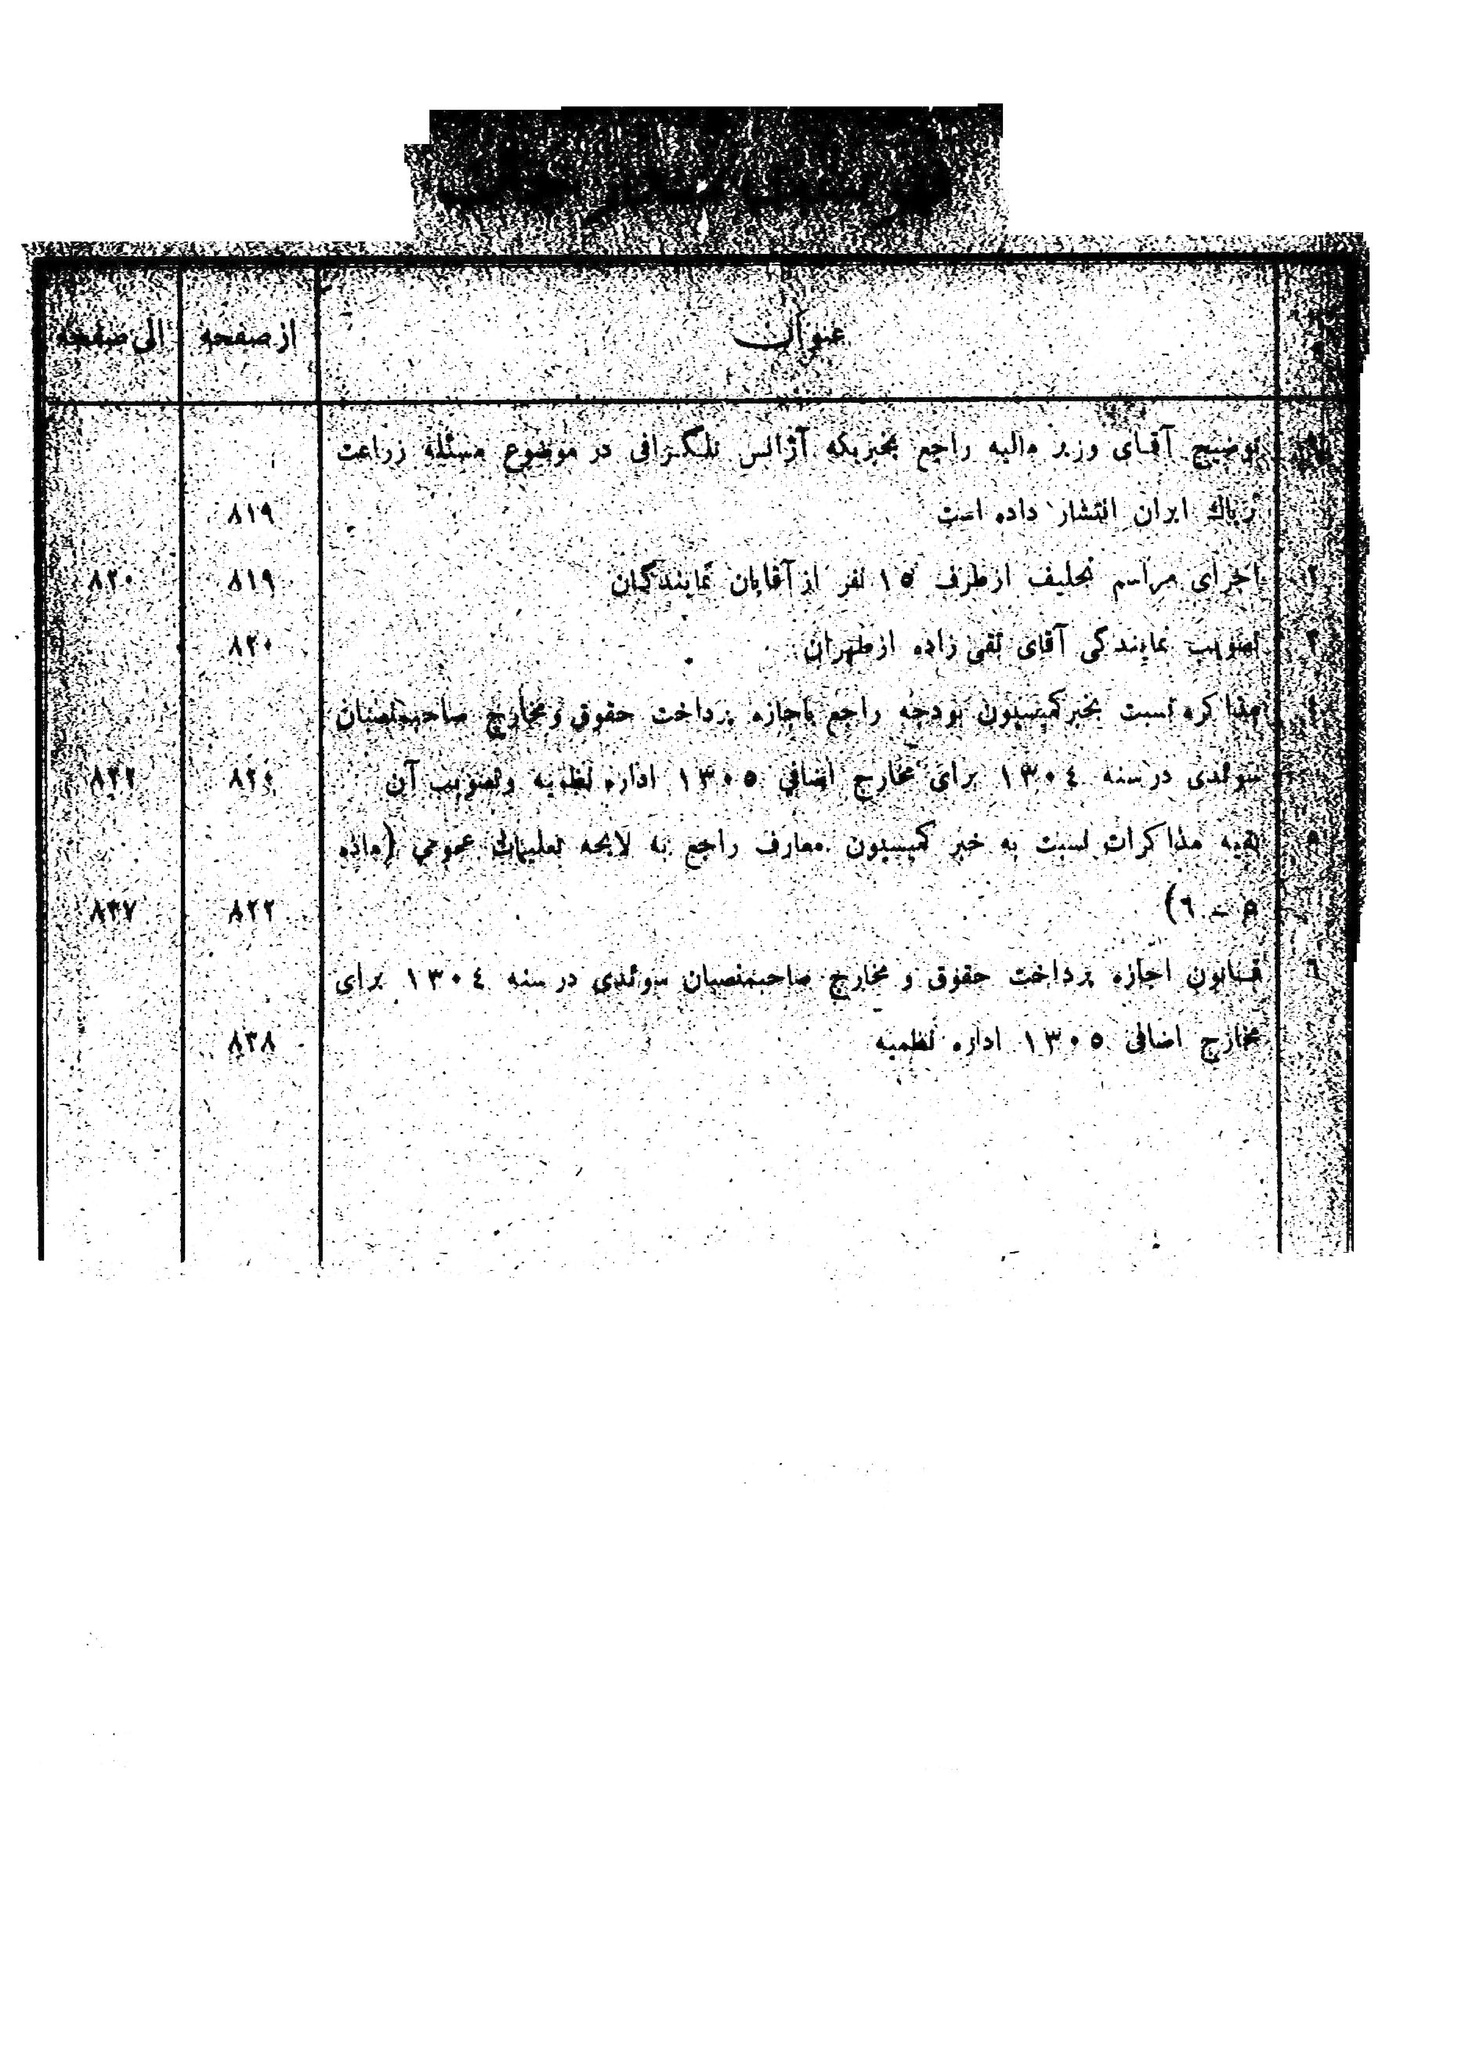 فهرست مندرجات
عنوان از صفحه الی صفحه
توضیح آقای وزیر مالیه راجع بخبریکه آژانس تلگرافی در موضوع مسئله زراعت
تریاك ایران انتشار داده است ٨١٩
٢ اجرای مراسم تحلیف از طرف ١٥ نفر از آقایان نمایندگان ٨١٩ ٨٢٠
٣ تصویب نمایندگی آقای تقی زاده از طهران ٨٢٠
٤ مذاکره نسبت بخبر کمیسیون بودجه راجع باجازه پرداخت حقوق و مخارج صاحبمنصبان
سوئدی در سنه ١٣٠٤ برای مخارج اضافی ١٣٠٥ اداره نظمیه و تصویب آن ٨٢٤ ٨٢٢
٥ بقیه مذاکرات نسبت به خبر کمیسیون معارف راجع به لایحه تعلیمات عمومی (ماده
٥ – ٦) ٨٢٢ ٨٣٧
٦ قانون اجازه پرداخت حقوق و مخارج صاحبمنصبان سوئدی در سنه ١٣٠٤ برای
مخارج اضافی ١٣٠٥ اداره نظمیه ٨٣٨